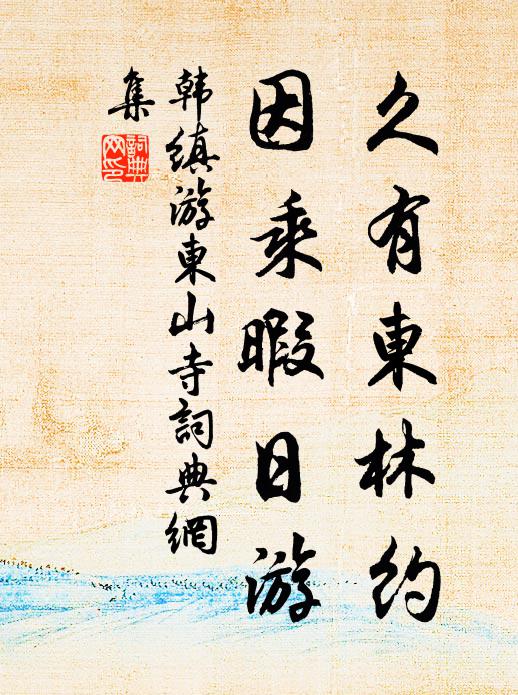 久有東林約
因乘暇日游
韩缜游東山寺詞典網
集
詞典
网印